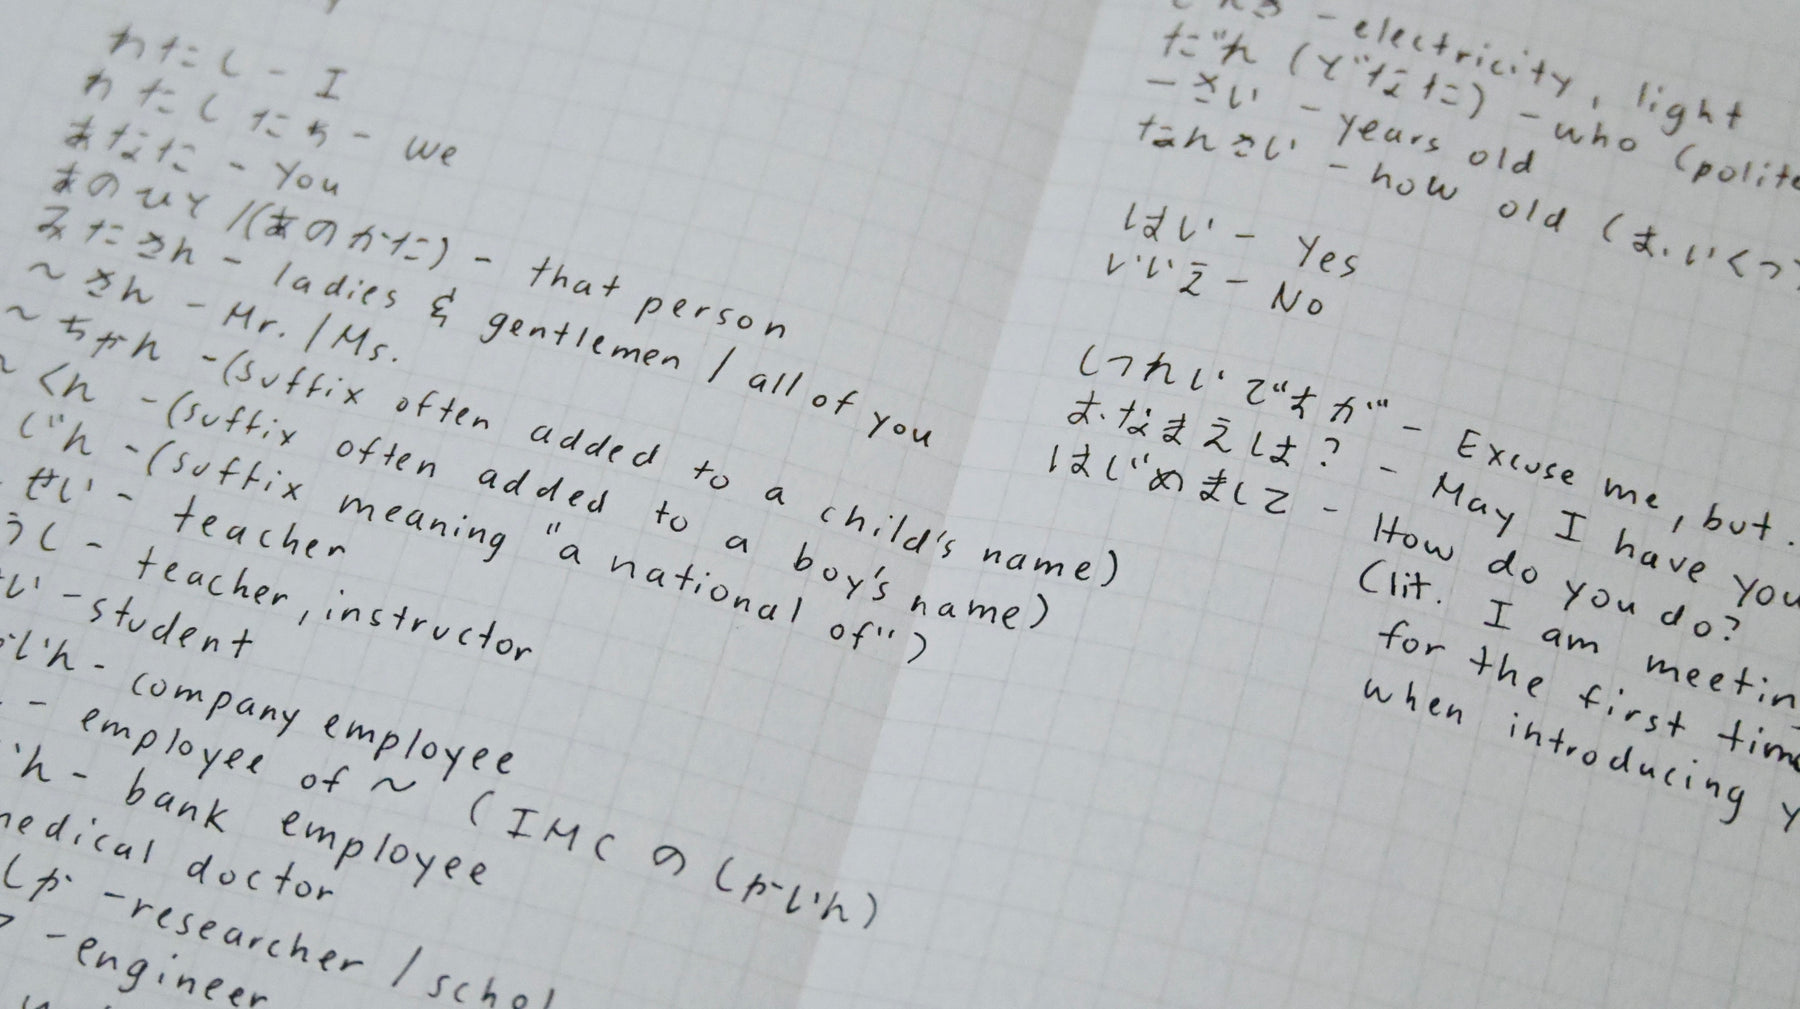 わたし - I
わたしたち - we
あなた - you
あのひと /(あのかた) - that person
みなさん - ladies & gentlemen / all of you
~さん - Mr. / Ms.
~ちゃん - (suffix often added to a child's name)
~くん - (suffix often added to a boy's name)
じん - (suffix meaning "a national of")
せい - teacher
うし - teacher, instructor
い - student
いん - company employee
- employee of ~ (IMC のしゃいん)
いん - bank employee
medical doctor
しゃ - researcher /
- engineer
- electricity, light
だれ (どなた) - who (polite
-さい - years old
なんさい - how old (おいくつ
はい - Yes
いいえ - No
しつれいですが - Excuse me, but.
おなまえは? - May I have you
はじめまして - How do you do?
(lit. I am meetin
for the first time
when introducing y